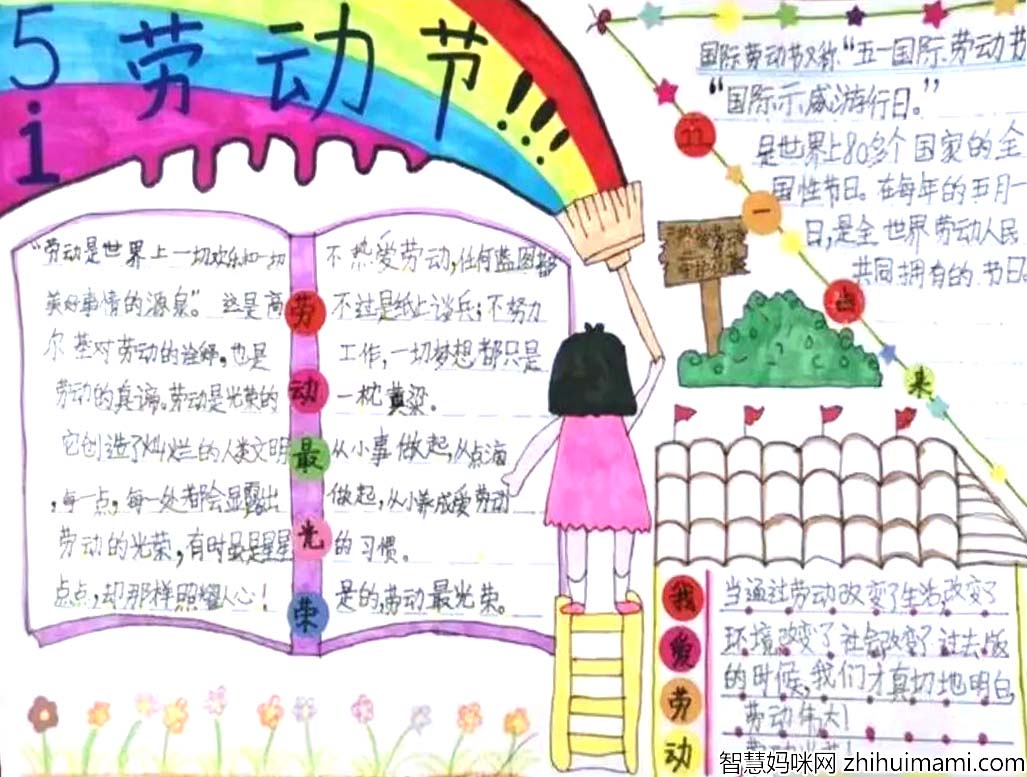 5
1
劳动节!!!
国际劳动节又称“五一国际劳动节
“国际示威游行日。”
是世界上80多个国家的全
国性节日。在每年的五月一
日,是全世界劳动人民
共同拥有的节日。
五
一
由
来
“劳动是世界上一切欢乐和一切
美好事情的源泉”这是高
尔基对劳动的诠释,也是
劳动的真谛。劳动是光荣的
它创造了灿烂的人类文明
,每一点,每一处都会显露出
劳动的光荣,有时虽是星星
点点,却那样照耀人心!
劳
动
最
光
荣
不热爱劳动,任何蓝图都
不过是纸上谈兵;不努力
工作,一切梦想都只是
一枕黄梁。
从小事做起,从点滴
做起,从小养成爱劳动
的习惯。
是的,劳动最光荣。
我
爱
劳
动
当通过劳动改变了生活,改变了
环境改变了社会改变了过去版
的时候,我们才真切地明白
劳动伟大!
智慧妈咪网 zhihuimami.com